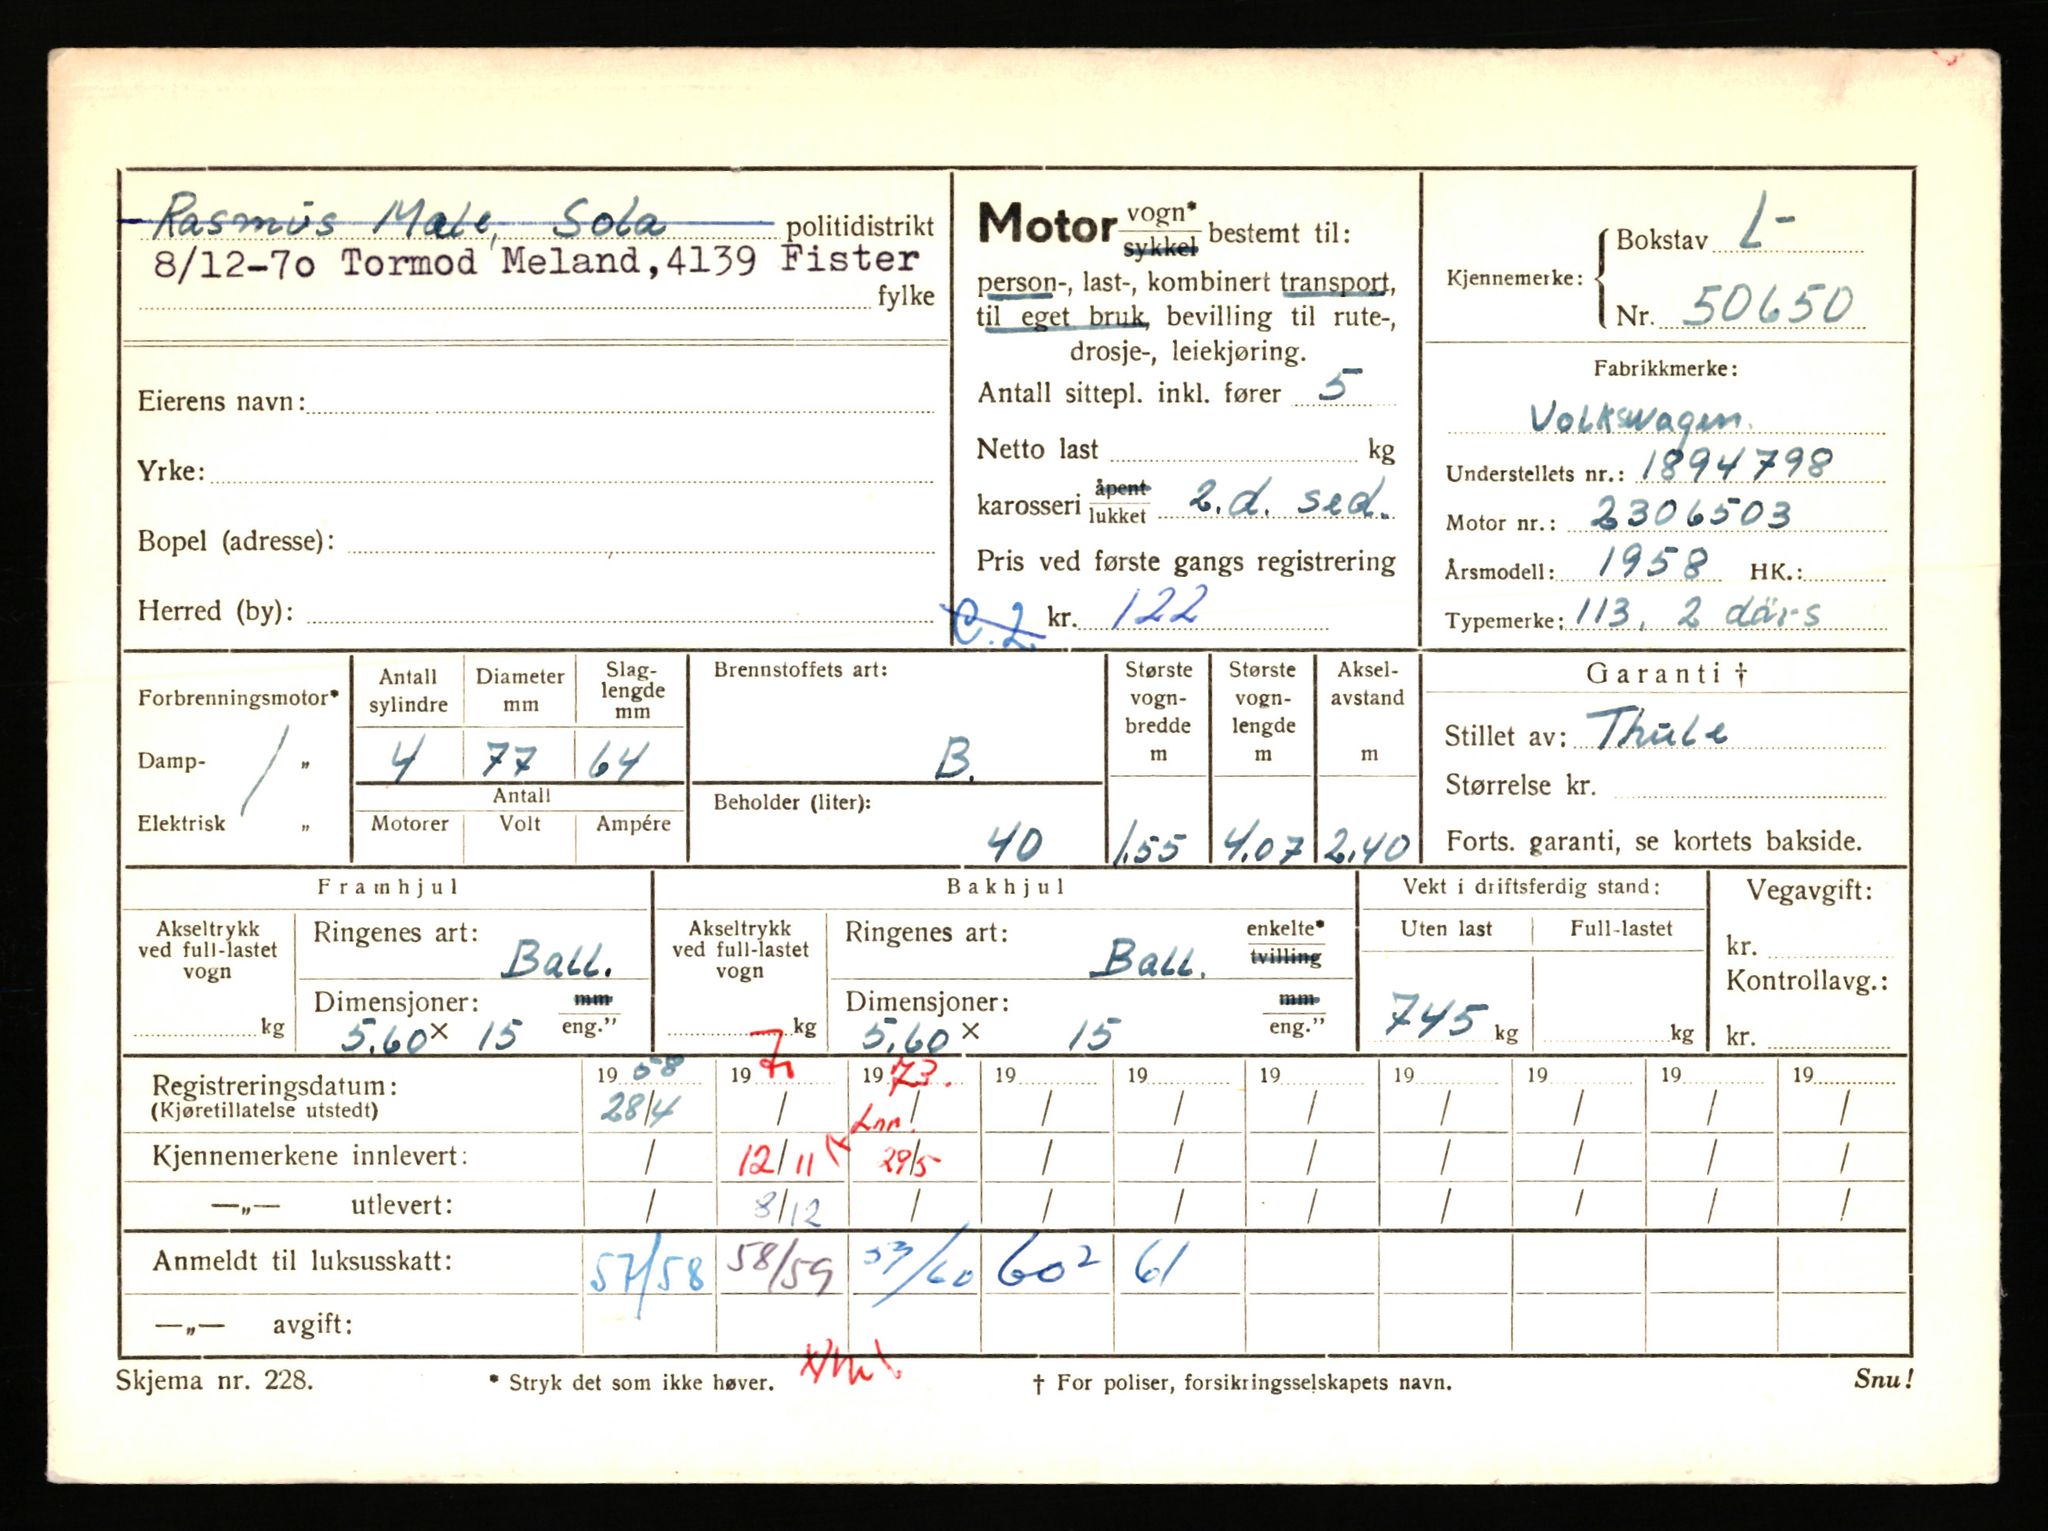 Rasmus Male, Sola politidistrikt
8/12-7o Tormod Meland, 4139 Fister
fylke
Eierens navn:
Yrke:
Bopel (adresse):
Herred (by):
Motor vogn* sykkel bestemt til:
person-, last-, kombinert transport,
til eget bruk, bevilling til rute-,
drosje-, leiekjøring.
Antall sittepl. inkl. fører 5
Netto last kg
karosseri åpent lukket 2.d. sed.
Pris ved første gangs registrering
C.2 kr. 122
Kjennemerke: Bokstav L-
Nr. 50650
Fabrikkmerke:
Volkswagen.
Understellets nr.: 1894798
Motor nr.: 2306503
Årsmodell: 1958 HK.:
Typemerke: 113, 2 dørs
Forbrenningsmotor*
Damp- "
Elektrisk "
Antall sylindre 4
Diameter mm 77
Slaglengde mm 64
Antall
Motorer Volt Ampére
Brennstoffets art:
B.
Beholder (liter):
40
Største vognbredde m 1.55
Største vognlengde m 4.07
Akselavstand m 2.40
Garanti †
Stillet av: Thule
Størrelse kr.
Forts. garanti, se kortets bakside.
Framhjul
Akseltrykk ved full-lastet vogn kg
Ringenes art: Ball.
Dimensjoner: mm
5.60 × 15 eng."
Bakhjul
Akseltrykk ved full-lastet vogn kg
Ringenes art: Ball. enkelte* tvilling
Dimensjoner: mm
5.60 × 15 eng."
Vekt i driftsferdig stand:
Uten last Full-lastet
745 kg kg
Vegavgift:
kr.
Kontrollavg.:
kr.
Registreringsdatum: 19 58 19 7 19 73. 19 19 19 19 19 19 19
(Kjøretillatelse utstedt) 28/4 / / / / / / / / /
Kjennemerkene innlevert: / 12/11 29/5 / / / / / / /
—„— utlevert: / 8/12 / / / / / / / /
Anmeldt til luksusskatt: 57/58 58/59 59/60 60² 61
—„— avgift:
Skjema nr. 228.
* Stryk det som ikke høver.
† For poliser, forsikringsselskapets navn.
Snu!